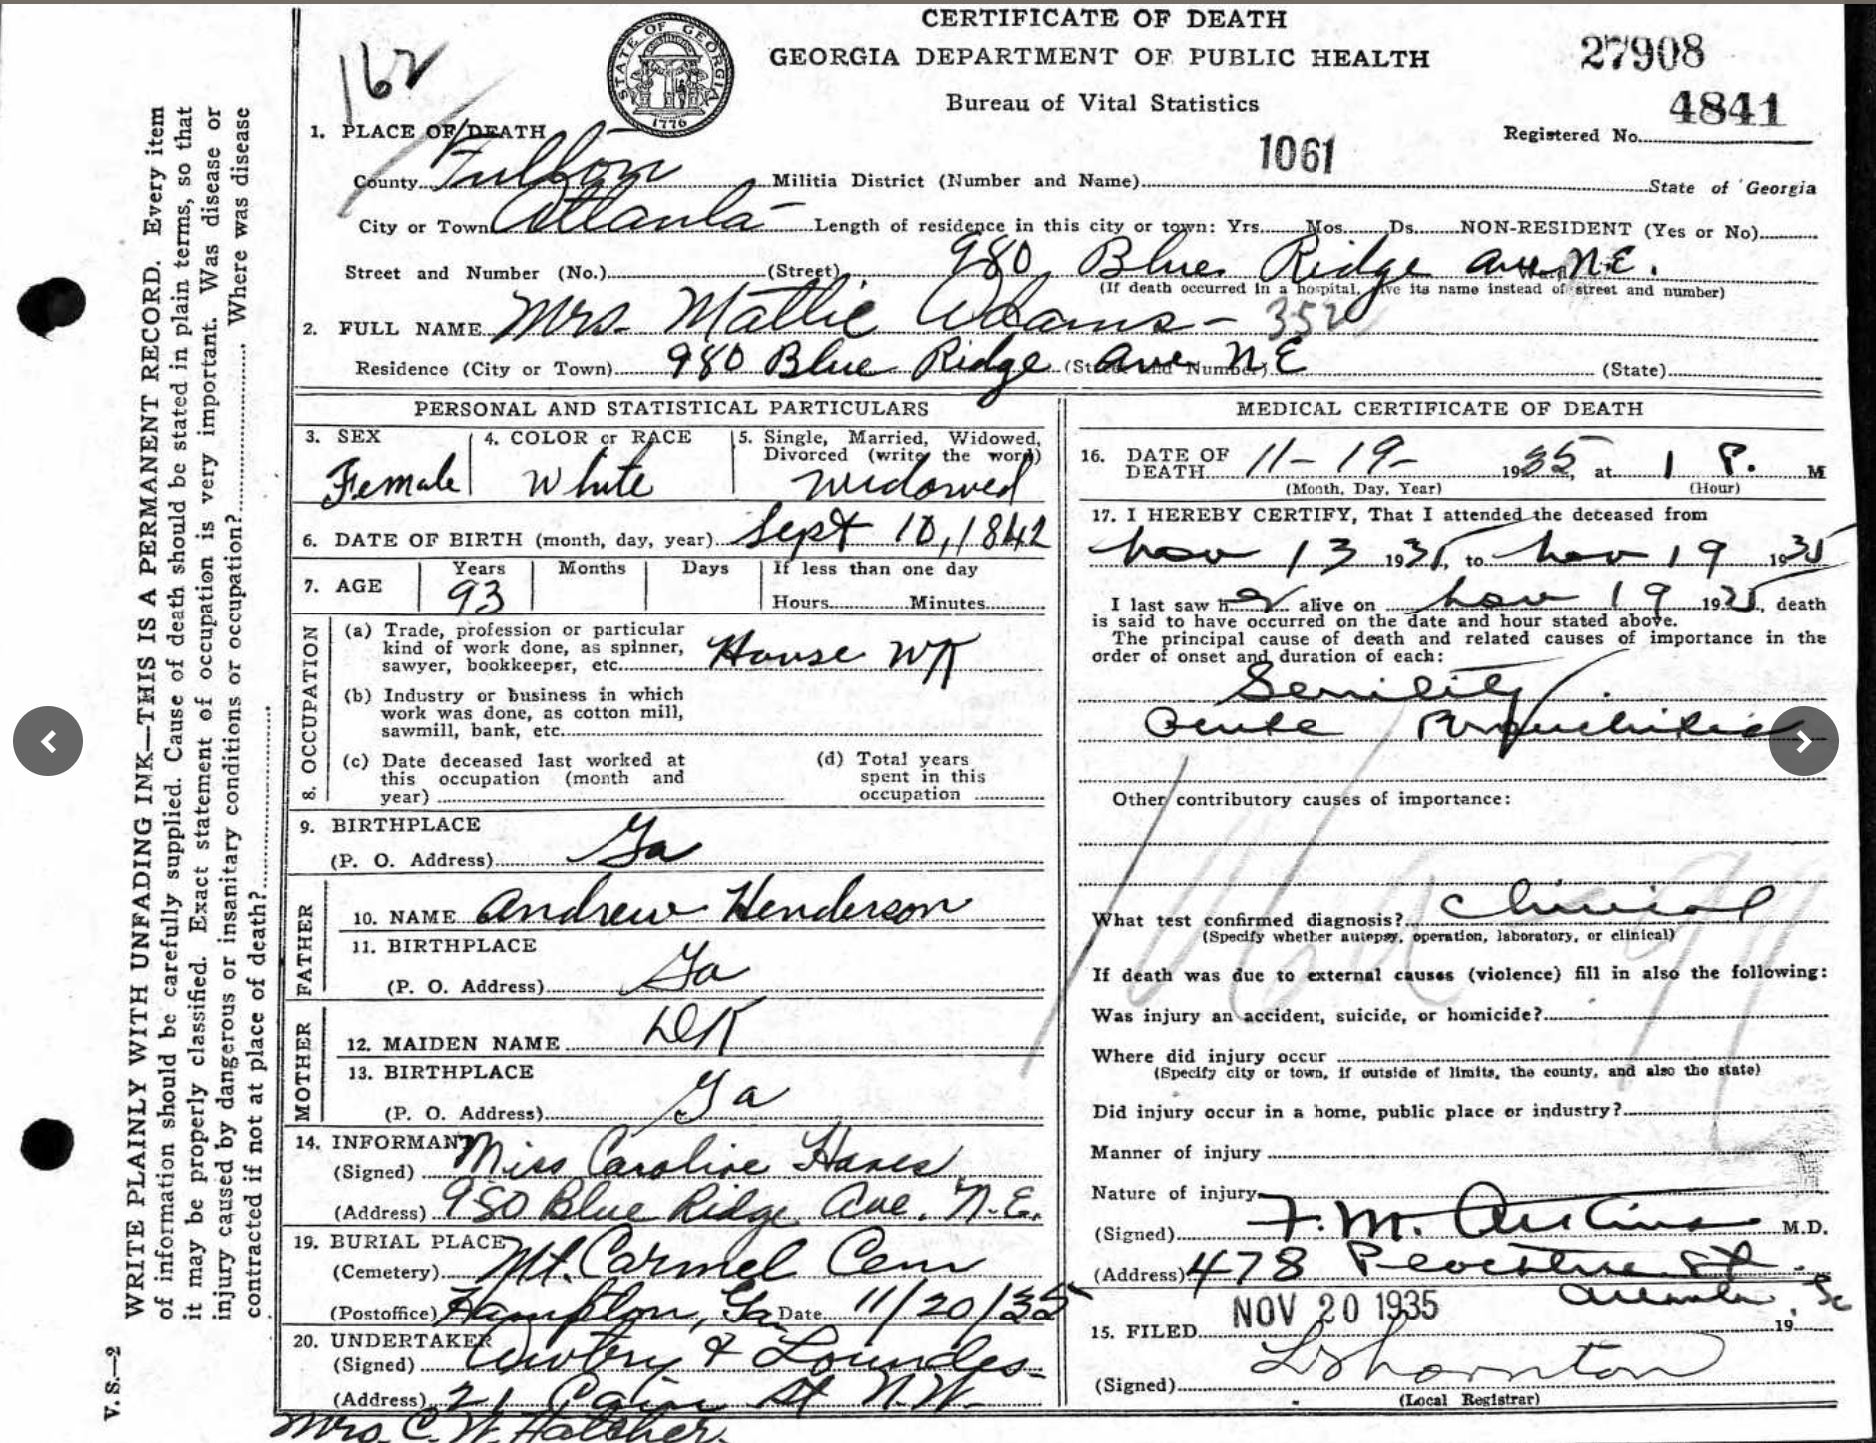 CERTIFICATE OF DEATH
GEORGIA DEPARTMENT OF PUBLIC HEALTH
Bureau of Vital Statistics
27908
4841
Registered No.
162
STATE OF GEORGIA
1776
1. PLACE OF DEATH
1061
County Fulton Militia District (Number and Name) State of Georgia
City or Town Atlanta Length of residence in this city or town: Yrs. Mos. Ds. NON-RESIDENT (Yes or No)
Street and Number (No.) (Street) 980 Blue Ridge ave N.E.
(If death occurred in a hospital, give its name instead of street and number)
2. FULL NAME Mrs. Mattie Adams - 352
Residence (City or Town) 980 Blue Ridge (Street and Number) ave NE (State)
PERSONAL AND STATISTICAL PARTICULARS
3. SEX
Female
4. COLOR or RACE
White
5. Single, Married, Widowed,
Divorced (write the word)
Widowed
6. DATE OF BIRTH (month, day, year) Sept 10, 1842
7. AGE Years Months Days If less than one day
93 Hours Minutes
8. OCCUPATION
(a) Trade, profession or particular
kind of work done, as spinner,
sawyer, bookkeeper, etc. House WK
(b) Industry or business in which
work was done, as cotton mill,
sawmill, bank, etc.
(c) Date deceased last worked at
this occupation (month and
year)
(d) Total years
spent in this
occupation
9. BIRTHPLACE
(P. O. Address) Ga
FATHER
10. NAME Andrew Henderson
11. BIRTHPLACE
(P. O. Address) Ga
MOTHER
12. MAIDEN NAME DK
13. BIRTHPLACE
(P. O. Address) Ga
14. INFORMANT
(Signed) Miss Caroline
(Address) 980 Blue Ridge Ave. N.E.
19. BURIAL PLACE
(Cemetery) Mt. Carmel Cem
(Postoffice) Hampton, Ga Date 11/20/35
20. UNDERTAKER
(Signed) Awtry & Lowndes
(Address) 21 St N.W.
Mrs. C. W. Hatcher
MEDICAL CERTIFICATE OF DEATH
16. DATE OF
DEATH 11-19- 1935, at 1 P. M
(Month, Day, Year) (Hour)
17. I HEREBY CERTIFY, That I attended the deceased from
Nov 13 1935, to Nov 19 1935
I last saw her alive on Nov 19 1935, death
is said to have occurred on the date and hour stated above.
The principal cause of death and related causes of importance in the
order of onset and duration of each:
Senility
Acute Bronchitis
Other contributory causes of importance:
What test confirmed diagnosis? Clinical
(Specify whether autopsy, operation, laboratory, or clinical)
If death was due to external causes (violence) fill in also the following:
Was injury an accident, suicide, or homicide?
Where did injury occur
(Specify city or town, if outside of limits, the county, and also the state)
Did injury occur in a home, public place or industry?
Manner of injury
Nature of injury
(Signed) F. M. Atkins M.D.
(Address) 478 Peachtree St.
Atlanta, Ga
15. FILED NOV 20 1935 19
(Signed)
(Local Registrar)
WRITE PLAINLY WITH UNFADING INK—THIS IS A PERMANENT RECORD. Every item
of information should be carefully supplied. Cause of death should be stated in plain terms, so that
it may be properly classified. Exact statement of occupation is very important. Was disease or
injury caused by dangerous or insanitary conditions or occupation? Where was disease
contracted if not at place of death?
V. S.—2